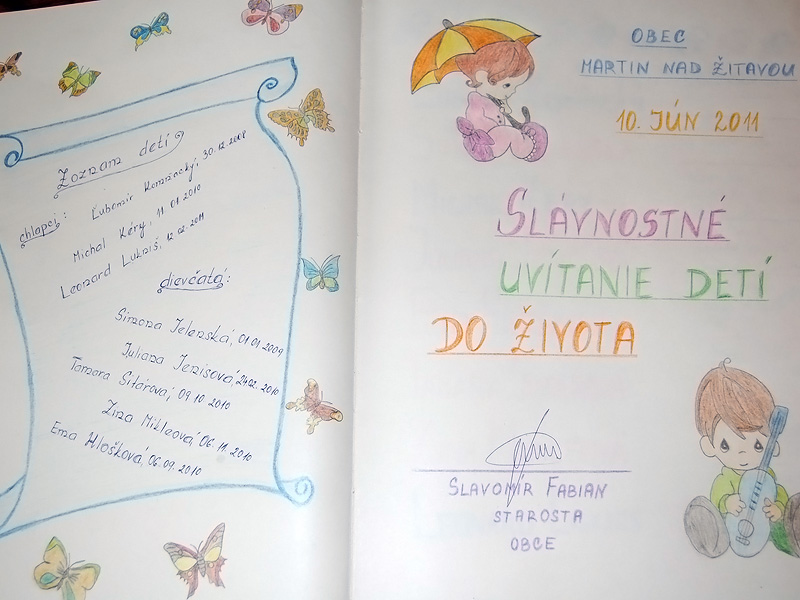 Zoznam detí
chlapci:
Ľubomír Komžacký, 30.12.2008
Michal Kéry, 11.01.2010
Leonard Lukniš, 12.02.2011
dievčatá:
Simona Jelenská, 01.01.2009
Juliana Jenisová, 24.02.2010
Tamara Sitárová, 09.10.2010
Zina Mikleová, 06.11.2010
Ema Hlošková, 06.09.2010
OBEC
MARTIN NAD ŽITAVOU
10. JÚN 2011
SLÁVNOSTNÉ
UVÍTANIE DETÍ
DO ŽIVOTA
SLAVOMÍR FABIAN
STAROSTA
OBCE